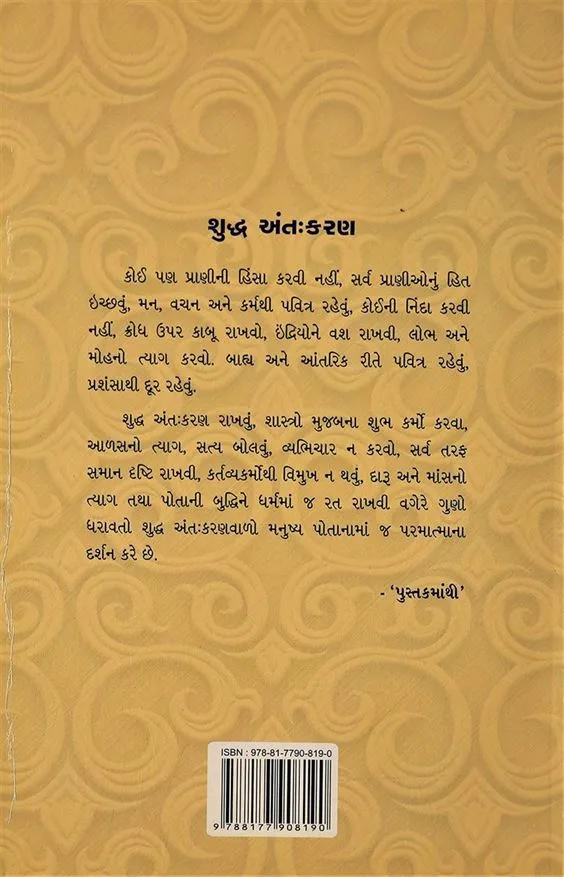 શુદ્ધ અંતઃકરણ
કોઈ પણ પ્રાણીની હિંસા કરવી નહીં, સર્વ પ્રાણીઓનું હિત
ઇચ્છવું, મન, વચન અને કર્મથી પવિત્ર રહેવું, કોઈની નિંદા કરવી
નહીં, ક્રોધ ઉપર કાબૂ રાખવો, ઇંદ્રિયોને વશ રાખવી, લોભ અને
મોહનો ત્યાગ કરવો. બાહ્ય અને આંતરિક રીતે પવિત્ર રહેવું,
પ્રશંસાથી દૂર રહેવું.
શુદ્ધ અંતઃકરણ રાખવું, શાસ્ત્રો મુજબના શુભ કર્મો કરવા,
આળસનો ત્યાગ, સત્ય બોલવું, વ્યભિચાર ન કરવો, સર્વ તરફ
સમાન દૃષ્ટિ રાખવી, કર્તવ્યકર્મોથી વિમુખ ન થવું, દારૂ અને માંસનો
ત્યાગ તથા પોતાની બુદ્ધિને ધર્મમાં જ રત રાખવી વગેરે ગુણો
ધરાવતો શુદ્ધ અંતઃકરણવાળો મનુષ્ય પોતાનામાં જ પરમાત્માના
દર્શન કરે છે.
- 'પુસ્તકમાંથી'
ISBN : 978-81-7790-819-0
9 788177 908190